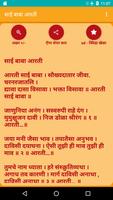 11:07
साई बाबा आरती
साईझ +/-
ऐप्स शेयर करा
५४ - रिव्हिव्ह लिहा
साई बाबा आरती
आरती साई बाबा । सौख्यदातार जीवा,
चरनरजातलि ।
द्यावा दासा विसावा । भक्ता विसावा ॥
आरती साई बाबा ॥
जाणुनिया अनंग । सस्वरूपी राहे दंग ।
मुमूक्ष जनदावी । निज डोळा श्रीरंग ॥
आरती साई बाबा ॥
जया मनी जैसा भाव । तया तैसा अनुभव ।
दाविसी दयाघना । ऐसी तुझी ही माव ॥
आरती साई बाबा ॥
तुमचे नाम ध्याता । हरे संस्कृतिव्यथा ।
अगाध तव करणी । मार्ग दाविसी अनाथा ।
दाविसी अनाथा ।